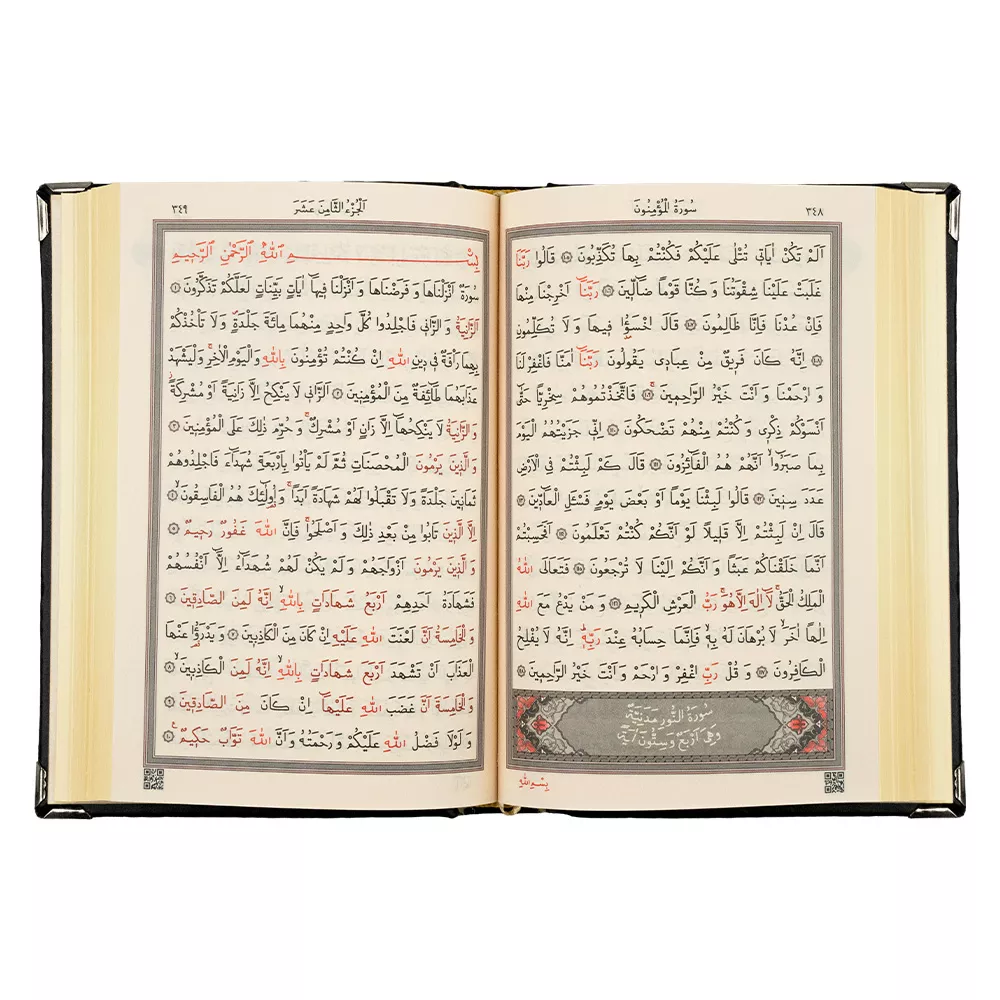 ٣٤٨ سُورَةُ الْمُؤْمِنُونَ
اَلَمْ تَكُنْ اٰيَاتٖي تُتْلٰى عَلَيْكُمْ فَكُنْتُمْ بِهَا تُكَذِّبُونَ ﴿١٠٥﴾ قَالُوا رَبَّنَا
غَلَبَتْ عَلَيْنَا شِقْوَتُنَا وَ كُنَّا قَوْمًا ضَٓالّٖينَ ﴿١٠٦﴾ رَبَّنَٓا اَخْرِجْنَا مِنْهَا
فَاِنْ عُدْنَا فَاِنَّا ظَالِمُونَ ﴿١٠٧﴾ قَالَ اخْسَؤُ۫ا فٖيهَا وَ لَا تُكَلِّمُونِ
﴿١٠٨﴾ اِنَّهُ كَانَ فَرٖيقٌ مِنْ عِبَادٖي يَقُولُونَ رَبَّنَٓا اٰمَنَّا فَاغْفِرْ لَنَا
وَ ارْحَمْنَا وَ اَنْتَ خَيْرُ الرَّاحِمٖينَ ﴿١٠٩﴾ فَاتَّخَذْتُمُوهُمْ سِخْرِيًّا حَتّٰٓى
اَنْسَوْكُمْ ذِكْرٖي وَ كُنْتُمْ مِنْهُمْ تَضْحَكُونَ ﴿١١٠﴾ اِنّٖي جَزَيْتُهُمُ الْيَوْمَ
بِمَا صَبَرُٓوا اَنَّهُمْ هُمُ الْفَٓائِزُونَ ﴿١١١﴾ قَالَ كَمْ لَبِثْتُمْ فِي الْاَرْضِ
عَدَدَ سِنٖينَ ﴿١١٢﴾ قَالُوا لَبِثْنَا يَوْمًا اَوْ بَعْضَ يَوْمٍ فَسْـَٔلِ الْعَٓادّٖينَ ﴿١١٣﴾
قَالَ اِنْ لَبِثْتُمْ اِلَّا قَلٖيلًا لَوْ اَنَّكُمْ كُنْتُمْ تَعْلَمُونَ ﴿١١٤﴾ اَفَحَسِبْتُمْ
اَنَّمَا خَلَقْنَاكُمْ عَبَثًا وَ اَنَّكُمْ اِلَيْنَا لَا تُرْجَعُونَ ﴿١١٥﴾ فَتَعَالَى اللّٰهُ
الْمَلِكُ الْحَقُّ لَٓا اِلٰهَ اِلَّا هُوَ رَبُّ الْعَرْشِ الْكَرٖيمِ ﴿١١٦﴾ وَ مَنْ يَدْعُ مَعَ اللّٰهِ
اِلٰهًا اٰخَرَ لَا بُرْهَانَ لَهُ بِهٖ فَاِنَّمَا حِسَابُهُ عِنْدَ رَبِّهٖ اِنَّهُ لَا يُفْلِحُ
الْكَافِرُونَ ﴿١١٧﴾ وَ قُلْ رَبِّ اغْفِرْ وَ ارْحَمْ وَ اَنْتَ خَيْرُ الرَّاحِمٖينَ ﴿١١٨﴾
سُورَةُ النُّورِ مَدَنِيَّةٌ
وَهِيَ اَرْبَعٌ وَ سِتُّونَ اٰيَةً
بِسْمِ اللّٰهِ
اَلْجُزْءُ الثَّامِنَ عَشَرَ ٣٤٩
بِسْمِ اللّٰهِ الرَّحْمٰنِ الرَّحٖيمِ
سُورَةٌ اَنْزَلْنَاهَا وَ فَرَضْنَاهَا وَ اَنْزَلْنَا فٖيهَٓا اٰيَاتٍ بَيِّنَاتٍ لَعَلَّكُمْ تَذَكَّرُونَ ﴿١﴾
اَلزَّانِيَةُ وَ الزَّانٖي فَاجْلِدُوا كُلَّ وَاحِدٍ مِنْهُمَا مِائَةَ جَلْدَةٍ وَ لَا تَأْخُذْكُمْ
بِهِمَا رَأْفَةٌ فٖي دٖينِ اللّٰهِ اِنْ كُنْتُمْ تُؤْمِنُونَ بِاللّٰهِ وَ الْيَوْمِ الْاٰخِرِ وَ لْيَشْهَدْ
عَذَابَهُمَا طَٓائِفَةٌ مِنَ الْمُؤْمِنٖينَ ﴿٢﴾ اَلزَّانٖي لَا يَنْكِحُ اِلَّا زَانِيَةً اَوْ مُشْرِكَةً
وَ الزَّانِيَةُ لَا يَنْكِحُهَٓا اِلَّا زَانٍ اَوْ مُشْرِكٌ وَ حُرِّمَ ذٰلِكَ عَلَى الْمُؤْمِنٖينَ ﴿٣﴾
وَ الَّذٖينَ يَرْمُونَ الْمُحْصَنَاتِ ثُمَّ لَمْ يَأْتُوا بِاَرْبَعَةِ شُهَدَٓاءَ فَاجْلِدُوهُمْ
ثَمَانٖينَ جَلْدَةً وَ لَا تَقْبَلُوا لَهُمْ شَهَادَةً اَبَدًا وَ اُولٰٓئِكَ هُمُ الْفَاسِقُونَ ﴿٤﴾
اِلَّا الَّذٖينَ تَابُوا مِنْ بَعْدِ ذٰلِكَ وَ اَصْلَحُوا فَاِنَّ اللّٰهَ غَفُورٌ رَحٖيمٌ ﴿٥﴾
وَ الَّذٖينَ يَرْمُونَ اَزْوَاجَهُمْ وَ لَمْ يَكُنْ لَهُمْ شُهَدَٓاءُ اِلَّٓا اَنْفُسُهُمْ
فَشَهَادَةُ اَحَدِهِمْ اَرْبَعُ شَهَادَاتٍ بِاللّٰهِ اِنَّهُ لَمِنَ الصَّادِقٖينَ ﴿٦﴾
وَ الْخَامِسَةُ اَنَّ لَعْنَتَ اللّٰهِ عَلَيْهِ اِنْ كَانَ مِنَ الْكَاذِبٖينَ ﴿٧﴾ وَ يَدْرَؤُ۬ا عَنْهَا
الْعَذَابَ اَنْ تَشْهَدَ اَرْبَعَ شَهَادَاتٍ بِاللّٰهِ اِنَّهُ لَمِنَ الْكَاذِبٖينَ ﴿٨﴾
وَ الْخَامِسَةَ اَنَّ غَضَبَ اللّٰهِ عَلَيْهَٓا اِنْ كَانَ مِنَ الصَّادِقٖينَ ﴿٩﴾
وَ لَوْلَا فَضْلُ اللّٰهِ عَلَيْكُمْ وَ رَحْمَتُهُ وَ اَنَّ اللّٰهَ تَوَّابٌ حَكٖيمٌ ﴿١٠﴾